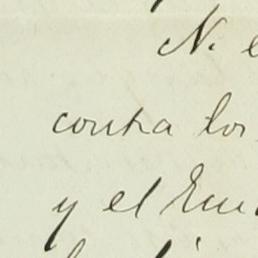 N. e
contra los
y el Em